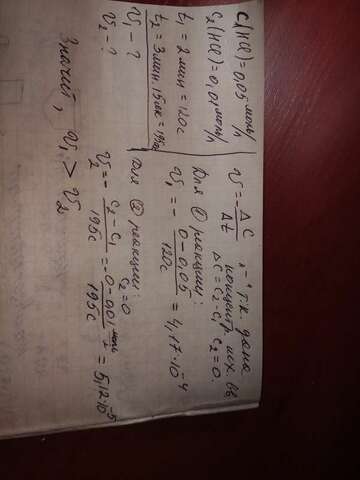 C₁(HCl) = 0,05 моль/л
C₂(HCl) = 0,01 моль/л
t₁ = 2 мин = 120 с
t₂ = 3 мин, 15 сек = 195 с
v₁ - ?
v₂ - ?
v = - ΔC / Δt
„-“ т.к. дана
концентр. исх. вв
ΔC = C₂ - C₁ C₂ = 0.
Для ① реакции:
v₁ = - (0 - 0,05) / 120 с = 4,17 · 10⁻⁴
Для ② реакции:
C₂ = 0
v₂ = - (C₂ - C₁) / 195 с = - (0 - 0,01 моль) / 195 с = 5,12 · 10⁻⁵
Значит, v₁ > v₂